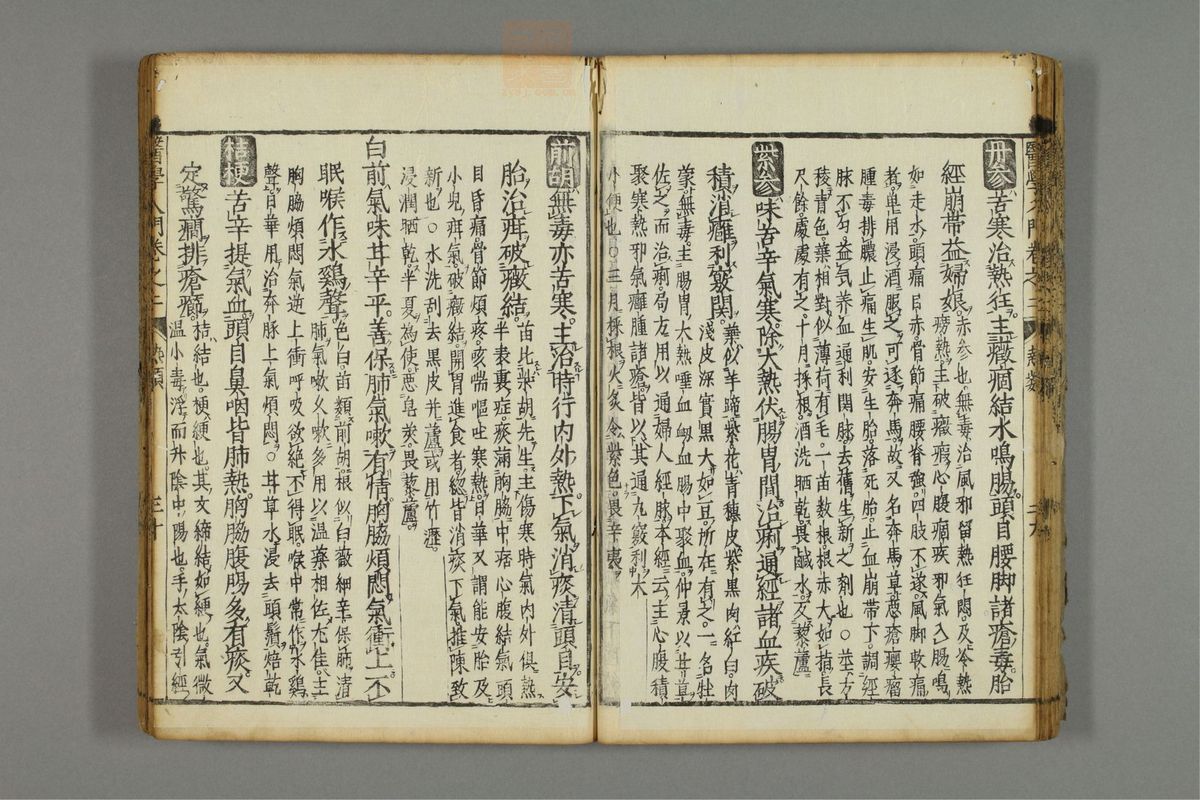 丹參苦寒治熱狂主癥痼結水鳴腸頭目腰脚諸瘡毒胎
經崩帶益婦娘
赤參也無毒治風邪留熱狂悶及冷熱
勞熱主破癥瘕心腹痼疾邪氣入腸鳴
如走水頭痛目赤骨節痛腰脊強四肢不遂風軟痛
者單用浸酒服之可逐奔馬故又名奔馬草惡瘡癭瘤
腫毒排膿止痛生肌安生胎落死胎止血崩帶下調經
脉不勻益氣养血通利関脉去舊生新之剤也○莖方
稜青色葉相對似薄荷有毛一苗数根根赤大如指長
尺餘處處有之十月採根酒洗晒乾畏鹹水反藜蘆
紫參味苦辛氣寒除大熱伏腸胃間治痢通經諸血疾破
積消癰利竅関
葉似羊蹄紫花青穗皮紫黒肉紅白肉
淺皮深實黒大如豆所在有之一名牡
蒙無毒主腸胃大熱唾血衂血腸中聚血仲景以甘草
佐之而治痢局方用以通婦人經脉本經云主心腹積
聚寒熱邪氣癰腫諸瘡皆以其通九竅利大
小便也○三月採根火炙令紫色畏辛夷
前胡無毒亦苦寒主治時行内外熱下氣消痰清頭目安
胎治疳破癥結
苗比柴胡先生主傷寒時氣内外俱熱
半表裏症痰滿胸脇中痞心腹結氣頭
目昏痛骨節煩疼咳喘嘔吐寒熱日華又謂能安胎及
小兒疳氣破癥結開胃進食者緫皆消痰下氣推陳致
新也○水洗刮去黒皮并蘆或用竹瀝
浸潤晒乾半夏為使惡皂莢畏藜蘆
白前氣味甘辛平善保肺氣嗽有情胸脇煩悶氣衝上不
眠喉作水鷄聲
色白苗類前胡根似白薇細辛保肺清
肺氣嗽久嗽多用以温藥相佐尤佳主
胸脇煩悶氣逆上衝呼吸欲絶不得眠喉中常作水鷄
聲日華用治奔脉上氣煩悶○甘草水浸去頭鬚焙乾
桔梗苦辛提氣血頭目鼻咽皆肺熱胸脇腹腸多有痰又
定驚癇排瘡癤
桔結也梗綆也其文締結如綆也氣微
温小毒浮而升陰中陽也手太陰引經
醫學入門卷之二 熱類 三十